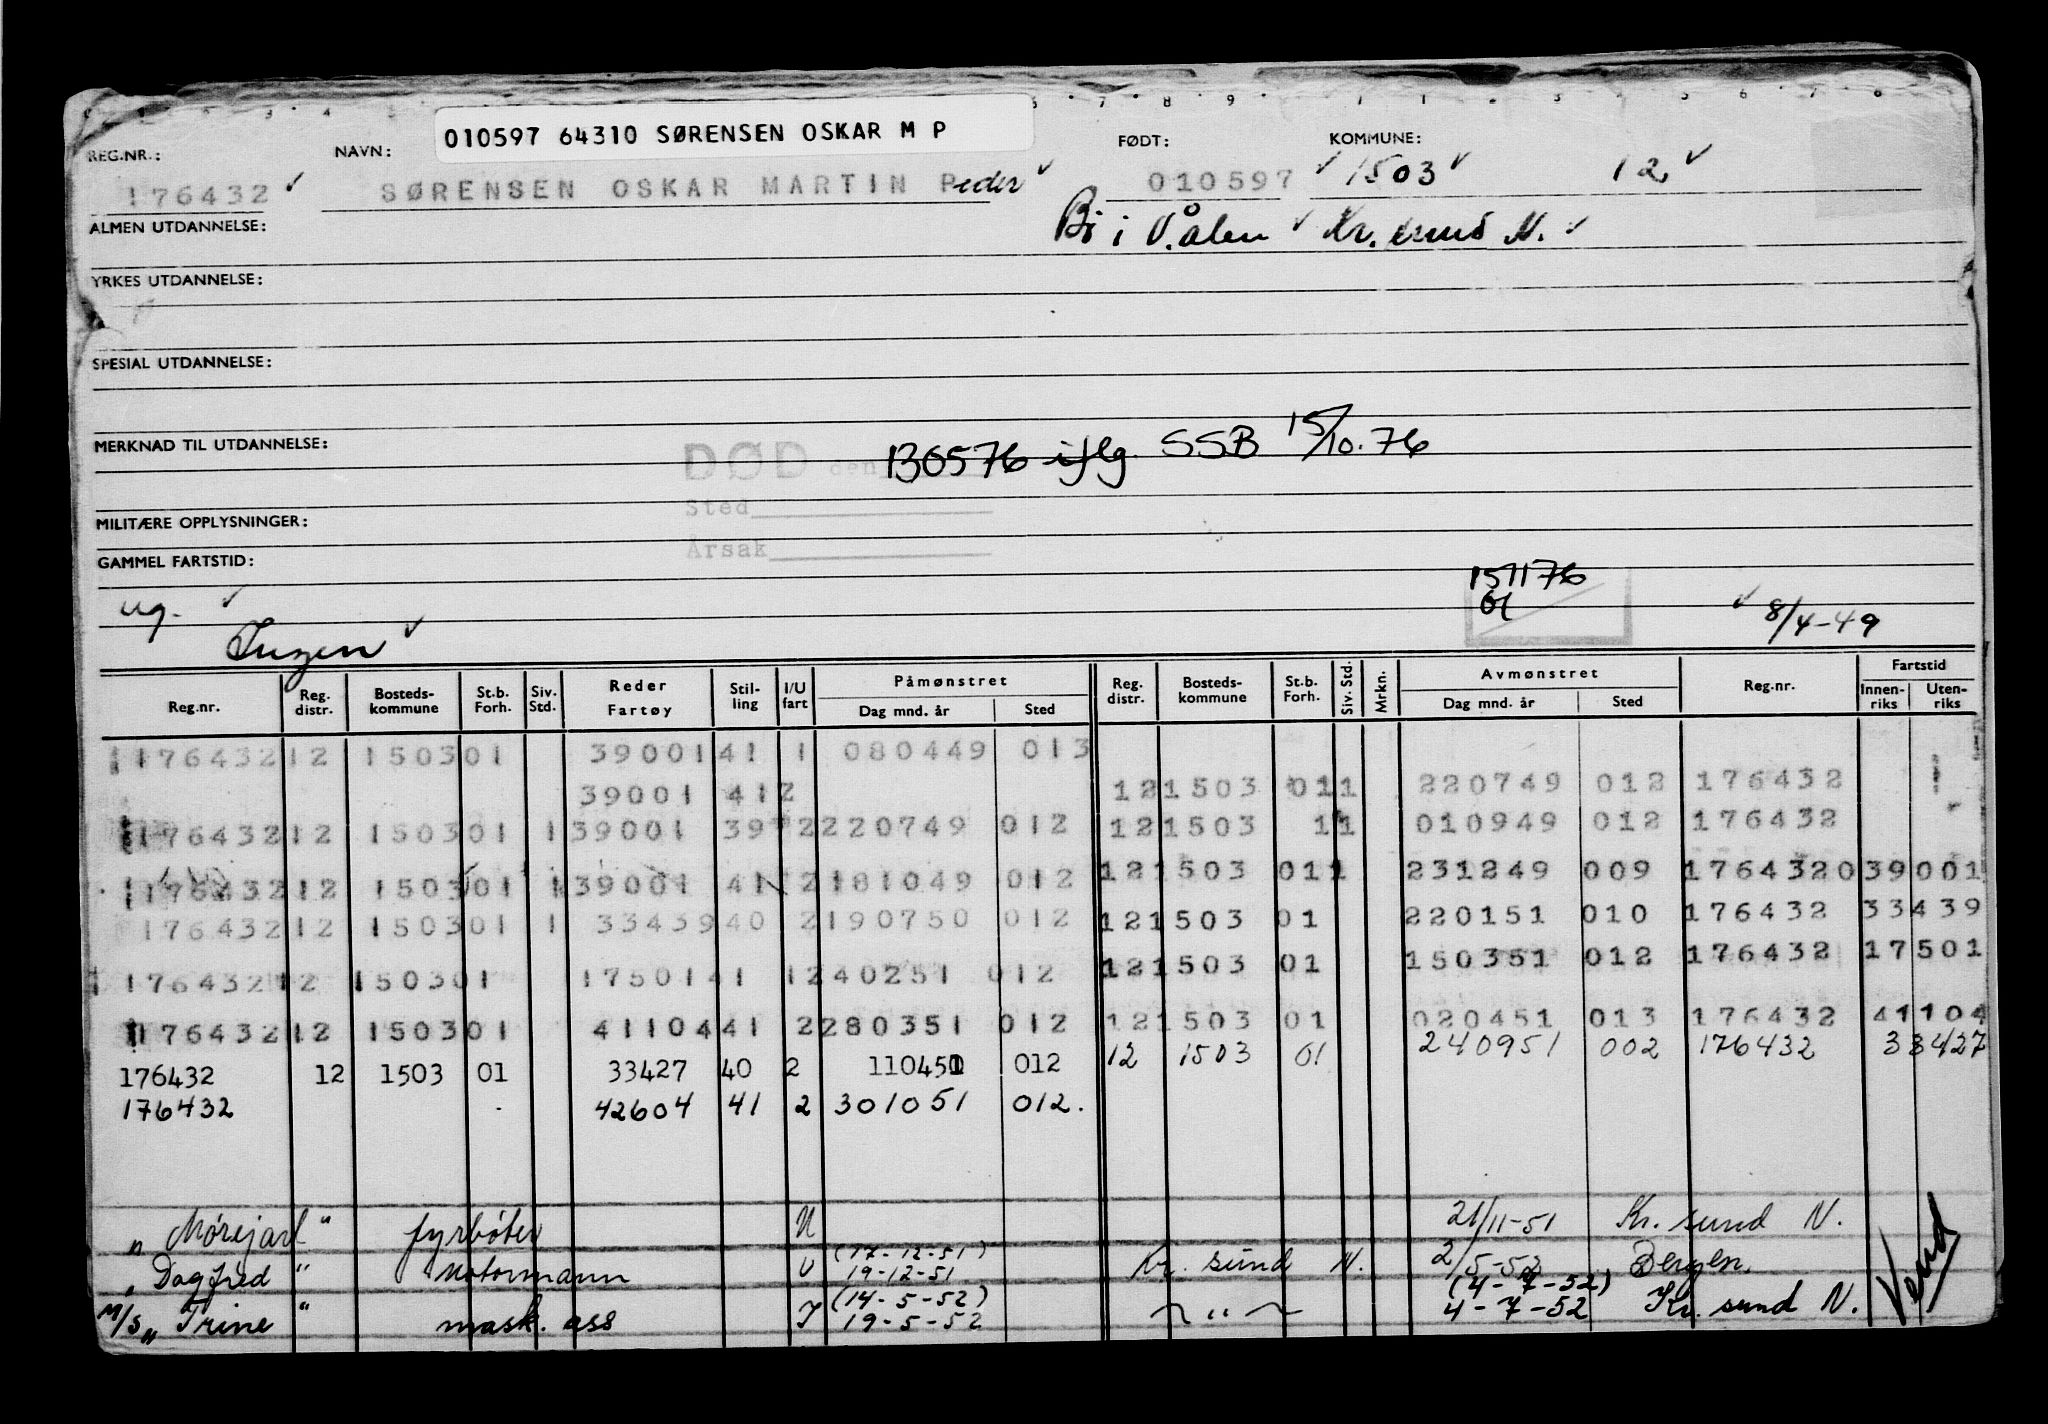 010597 64310 SØRENSEN OSKAR M P
REG.NR.: NAVN: FØDT: KOMMUNE:
176432 SØRENSEN OSKAR MARTIN Peder 010597 1503 12
ALMEN UTDANNELSE: Bø i V.ålen Kr.sund N.
YRKES UTDANNELSE:
SPESIAL UTDANNELSE:
MERKNAD TIL UTDANNELSE:
DØD den 130576 iflg. SSB 15/10.76
Sted
MILITÆRE OPPLYSNINGER:
Årsak
GAMMEL FARTSTID:
151176
ug. 8/4-49
Ingen
Reg.nr. Reg. distr. Bosteds- kommune St.b. Forh. Siv. Std. Reder Fartøy Stil- ling I/U fart Påmønstret Dag mnd. år Sted Reg. distr. Bosteds- kommune St.b. Forh. Siv. Std. Mrkn. Avmønstret Dag mnd. år Sted Reg.nr. Fartstid Innen- riks Uten- riks
1176432 12 1503 01 39001 41 1 080449 013
39001 41 2 12 1503 01 1 220749 012 176432
1176432 12 1503 01 1 39001 39 2 220749 012 12 1503 1 1 010949 012 176432
1176432 12 1503 01 1 39001 41 2 181049 012 12 1503 01 1 231249 009 176432 039001
176432 12 1503 01 1 33439 40 2 190750 012 12 1503 01 220151 010 176432 33439
176432 12 1503 01 17501 41 1 240251 012 12 1503 01 150351 012 176432 17501
176432 12 1503 01 41104 41 2 280351 012 12 1503 01 020451 013 176432 41104
176432 12 1503 01 33427 40 2 110451 012 12 1503 01 240951 002 176432 33427
176432 42604 41 2 301051 012.
"Mørejarl" fyrbøter U 21/11-51 Kr. sund N.
"Dagfred" Motormann U (17-12-51) 19-12-51 Kr. sund N. 2/5-52 Bergen.
M/S "Trine" mask. ass I (14-5-52) 19-5-52 ~ " ~ (4-7-52) 4-7-52 Kr. sund N.
Vend